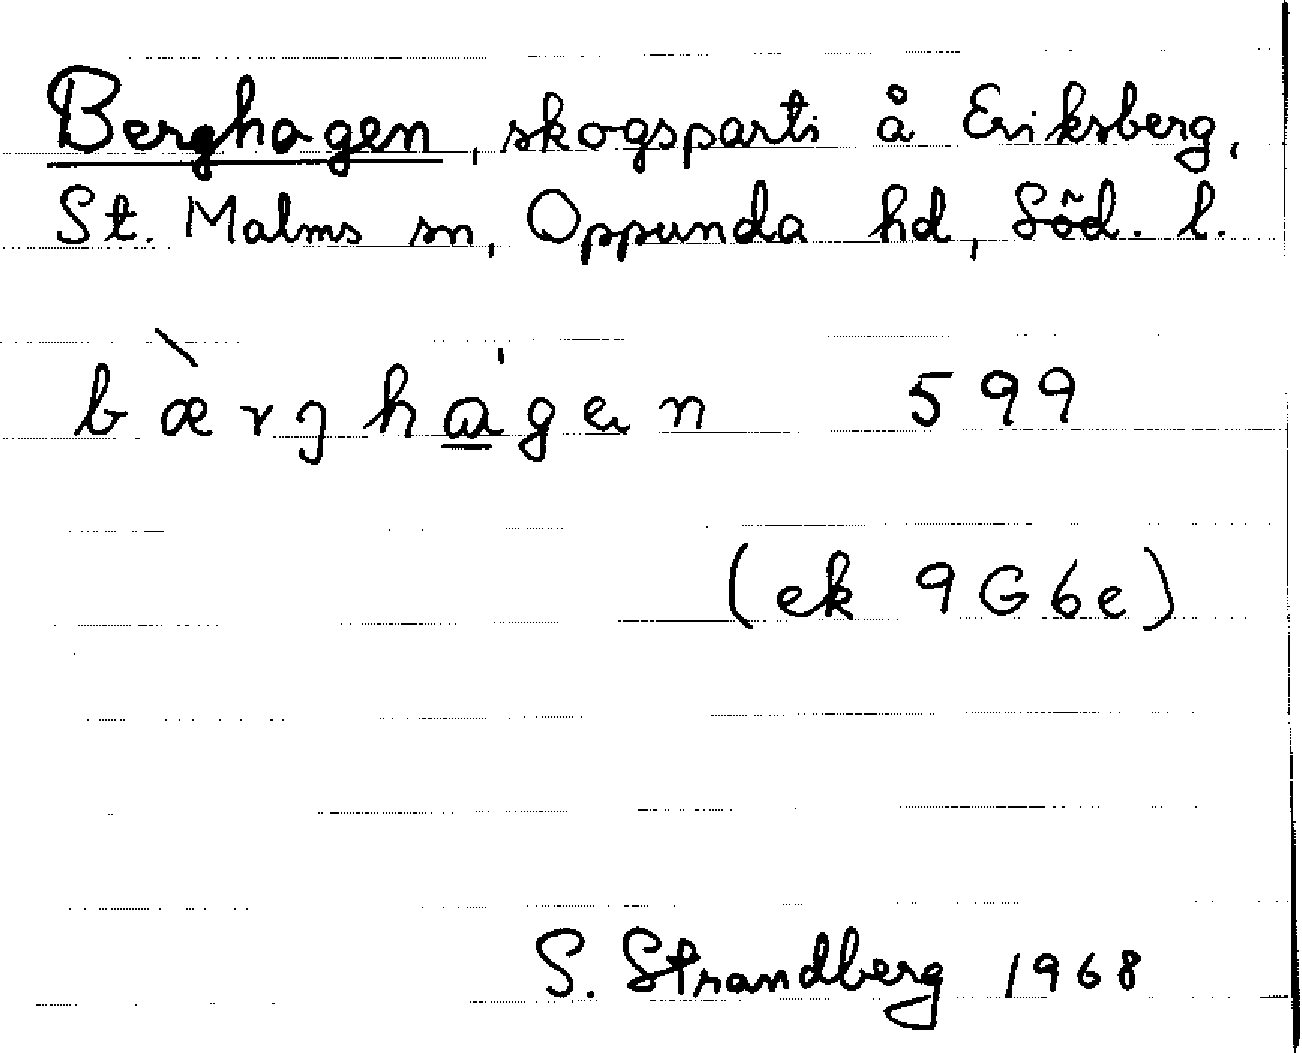 Berghagen, skogsparti å Eriksberg,
St. Malms sn, Oppunda hd, Söd. l.
bæ̀rȷhа̱́gen 599
(ek 9G6e)
S. Strandberg 1968